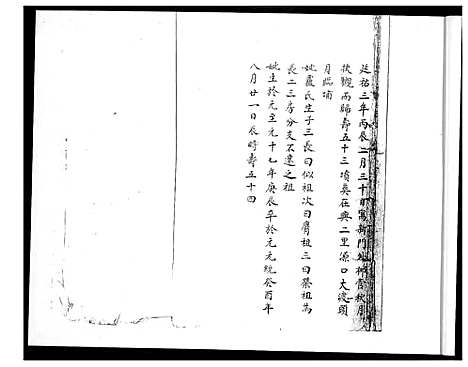 延祐三年丙辰二月三十日寓新門
扶櫬而歸壽五十三墳葬在興二里源口大渡頭
月臨浦
妣盧氏生子三長曰似祖次曰膺祖三曰榮祖為
長二三房分支不遷之祖
妣生於元至元十七年庚辰卒於元元統癸酉年
八月廿一日辰時壽五十四